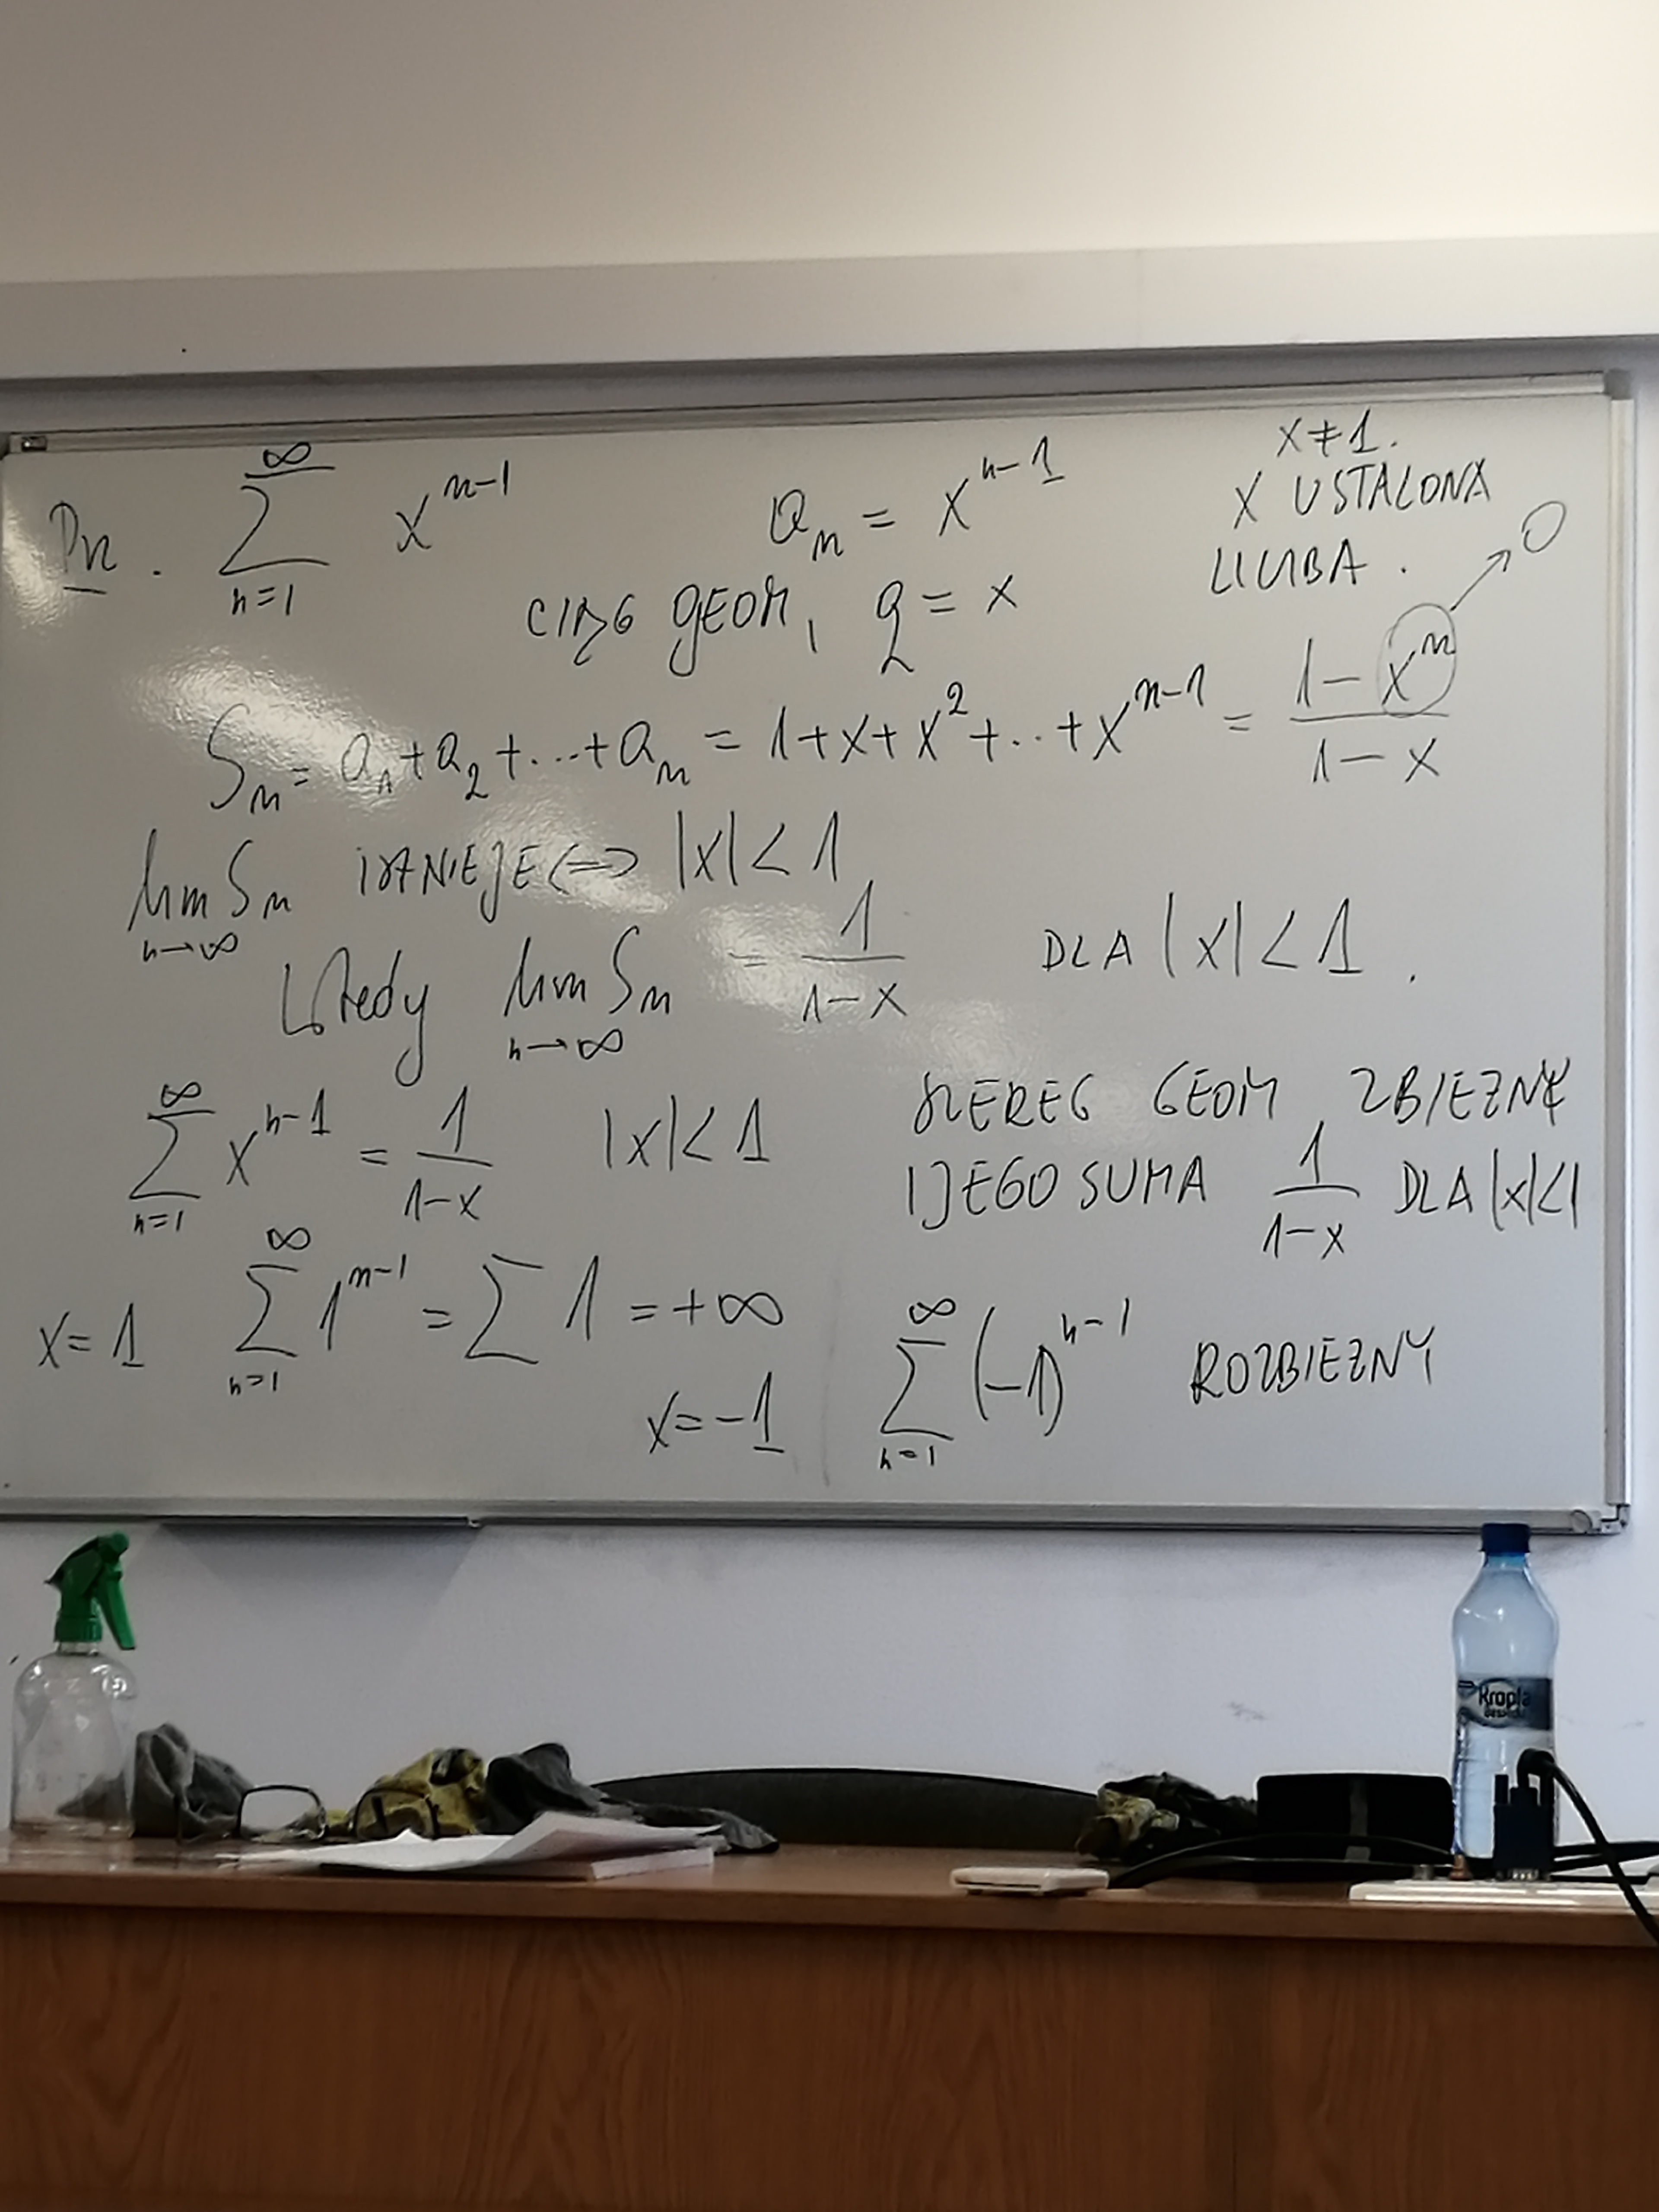 Pr. ∑_{n=1}^{∞} x^{n-1} a_n = x^{n-1} x ≠ 1.
X USTALONA
LICZBA. → 0
CIĄG GEOM, q = x
S_n = a_1 + a_2 + ... + a_n = 1 + x + x^2 + ... + x^{n-1} = \frac{1 - x^n}{1 - x}
lim_{n→∞} S_n ISTNIEJE <=> |x| < 1
Wtedy lim_{n→∞} S_n = \frac{1}{1-x} DLA |x| < 1.
∑_{n=1}^{∞} x^{n-1} = \frac{1}{1-x} |x| < 1
SZEREG GEOM ZBIEZNY
I JEGO SUMA \frac{1}{1-x} DLA |x| < 1
x = 1 ∑_{n=1}^{∞} 1^{n-1} = ∑ 1 = +∞
x = -1 ∑_{n=1}^{∞} (-1)^{n-1} ROZBIEZNY
Kropla
Beskidu